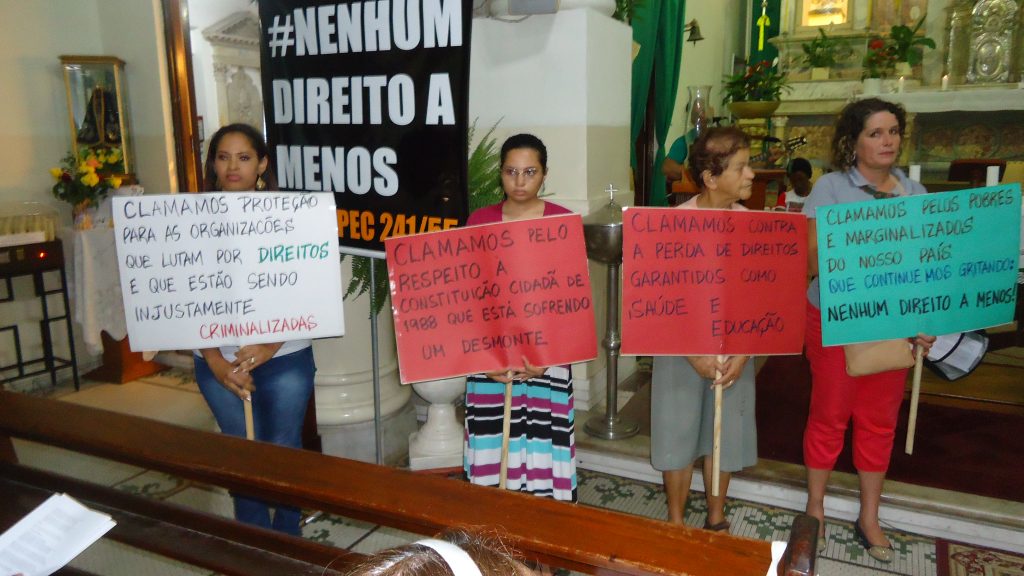 #NENHUM
DIREITO A
MENOS
PEC 241/55
CLAMAMOS PROTEÇÃO
PARA AS ORGANIZAÇÕES
QUE LUTAM POR DIREITOS
E QUE ESTÃO SENDO
INJUSTAMENTE
CRIMINALIZADAS
CLAMAMOS PELO
RESPEITO A
CONSTITUIÇÃO CIDADÃ DE
1988 QUE ESTÁ SOFRENDO
UM DESMONTE
CLAMAMOS CONTRA
A PERDA DE DIREITOS
GARANTIDOS COMO
SAÚDE E
EDUCAÇÃO
CLAMAMOS PELOS POBRES
E MARGINALIZADOS
DO NOSSO PAÍS
QUE CONTINUEMOS GRITANDO:
NENHUM DIREITO A MENOS!